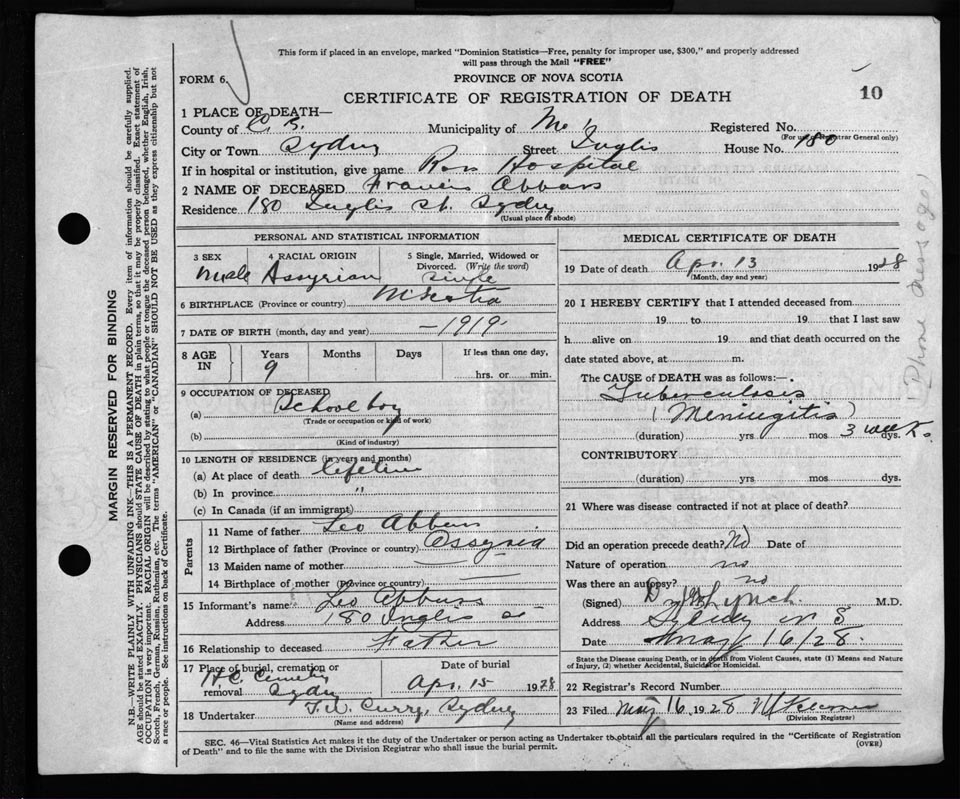 This form if placed in an envelope, marked "Dominion Statistics—Free, penalty for improper use, $300," and properly addressed
will pass through the Mail "FREE"
FORM 6.
PROVINCE OF NOVA SCOTIA
CERTIFICATE OF REGISTRATION OF DEATH
10
1 PLACE OF DEATH—
County of C. B. Municipality of Registered No.
(For use of Registrar General only)
City or Town Sydney Street Inglis House No. 180
If in hospital or institution, give name Ross Hospital
2 NAME OF DECEASED Francis Abbass
Residence 180 Inglis St. Sydney
(Usual place of abode)
PERSONAL AND STATISTICAL INFORMATION
3 SEX 4 RACIAL ORIGIN 5 Single, Married, Widowed or Divorced. (Write the word)
Male Assyrian Single
6 BIRTHPLACE (Province or country) N. Scotia
7 DATE OF BIRTH (month, day and year) —1919—
8 AGE IN Years Months Days If less than one day,
9 hrs. or min.
9 OCCUPATION OF DECEASED
(a) School boy
(Trade or occupation or kind of work)
(b)
(Kind of industry)
10 LENGTH OF RESIDENCE (in years and months)
(a) At place of death lifetime
(b) In province "
(c) In Canada (if an immigrant)
Parents
11 Name of father Leo Abbass
12 Birthplace of father (Province or country) Assyria
13 Maiden name of mother —
14 Birthplace of mother (Province or country) —
15 Informant's name Leo Abbass
Address 180 Inglis St
16 Relationship to deceased Father
17 Place of burial, cremation or removal Date of burial
H.C. Cemetery Sydney Apr. 15 1928
18 Undertaker T. W. Curry, Sydney
(Name and address)
MEDICAL CERTIFICATE OF DEATH
19 Date of death Apr. 13 1928
(Month, day and year)
20 I HEREBY CERTIFY that I attended deceased from
19 to 19 that I last saw
h alive on 19 and that death occurred on the
date stated above, at m.
The CAUSE of DEATH was as follows:—
Tuberculosis
(Meningitis)
(duration) yrs mos 3 weeks dys.
CONTRIBUTORY
(duration) yrs. mos dys.
21 Where was disease contracted if not at place of death?
Did an operation precede death? No Date of
Nature of operation no
Was there an autopsy? no
(Signed) Lynch M.D.
Address Sydney N S
Date May 16/28
State the Disease causing Death, or in death from Violent Causes, state (1) Means and Nature
of Injury, (2) whether Accidental, Suicidal or Homicidal.
22 Registrar's Record Number
23 Filed May 16 1928
(Division Registrar)
SEC. 46—Vital Statistics Act makes it the duty of the Undertaker or person acting as Undertaker to obtain all the particulars required in the "Certificate of Registration
of Death" and to file the same with the Division Registrar who shall issue the burial permit.
(OVER)
MARGIN RESERVED FOR BINDING
N.B.—WRITE PLAINLY WITH UNFADING INK—THIS IS A PERMANENT RECORD. Every item of information should be carefully supplied.
AGE should be stated EXACTLY. PHYSICIANS should STATE CAUSE OF DEATH in plain terms, so that it may be properly classified. Exact statement of
OCCUPATION is very important. RACIAL ORIGIN will be described by stating to what people or tongue the deceased person belonged, whether English, Irish,
Scotch, French, German, Russian, Ruthenian, etc. The terms "AMERICAN" or "CANADIAN" SHOULD NOT BE USED as they express citizenship but not
a race or people. See instructions on back of Certificate.
(Phone